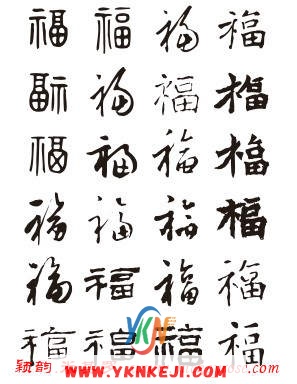 福 福 福 福
福 福 福 福
福 福 福 福
福 福 福 福
福 福 福 福
福 福 福 福
YKN
颖韵
www.YKNKEJI.com